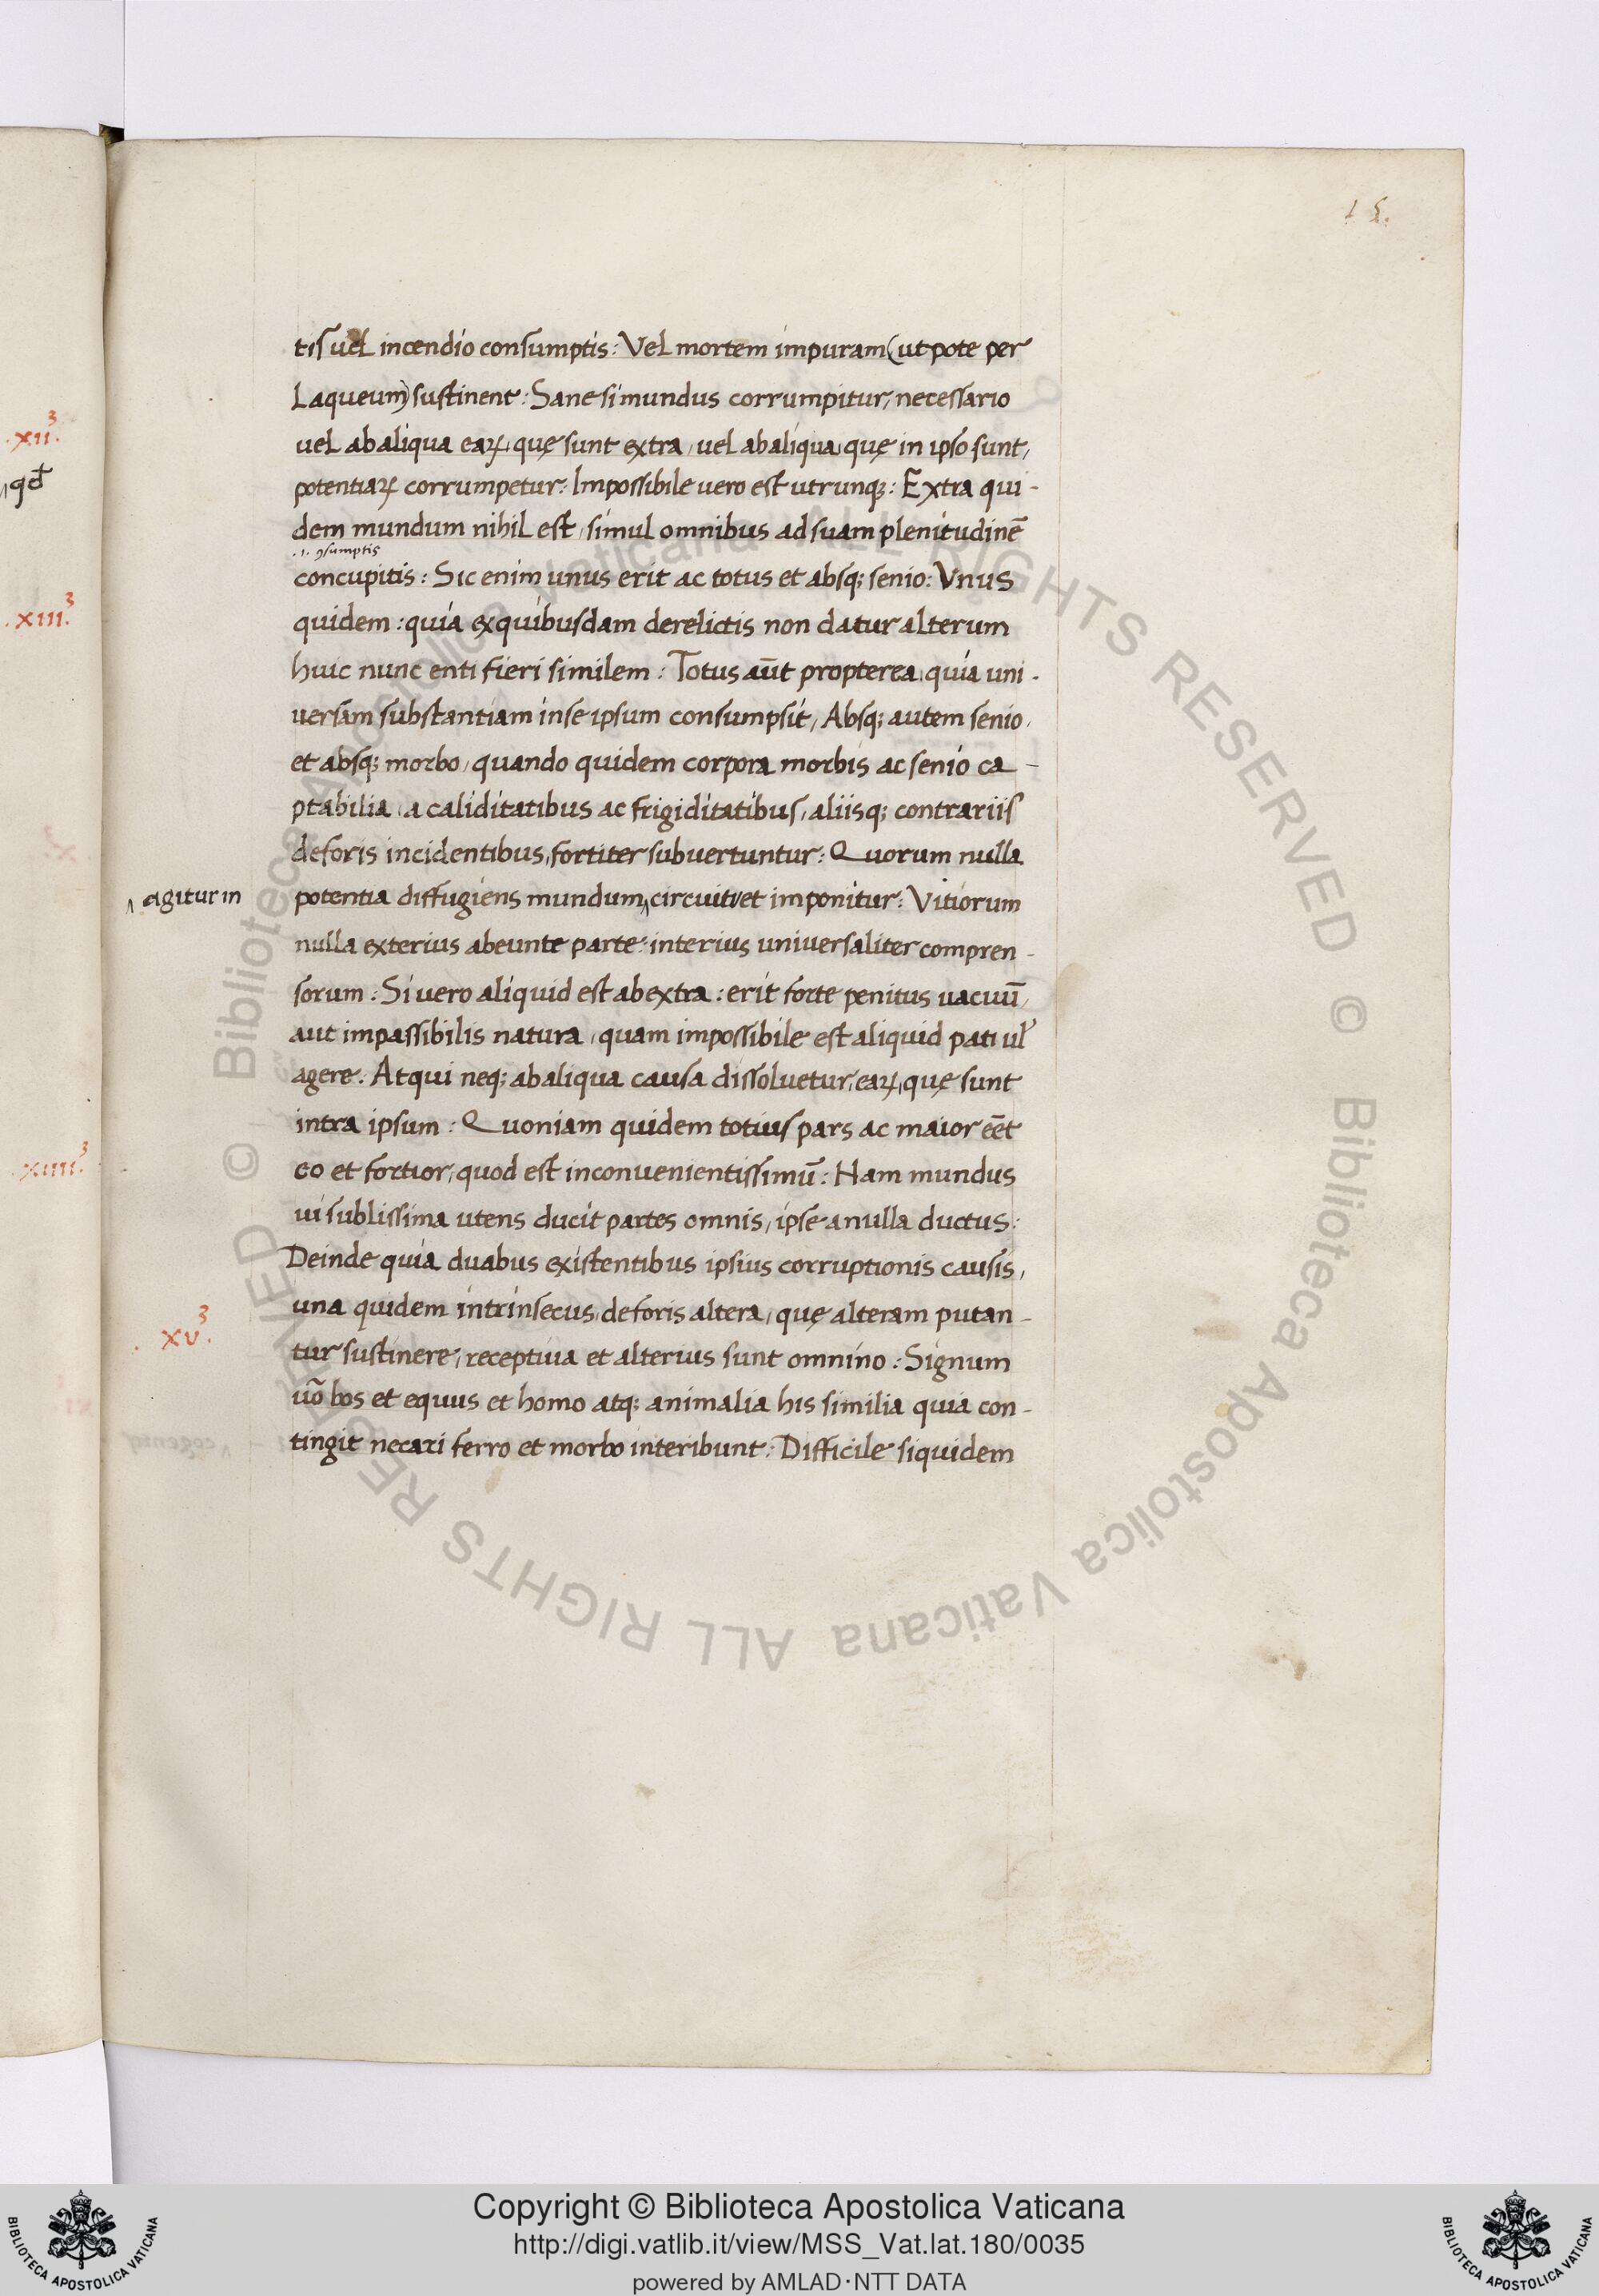 15.
tis uel incendio consumptis: Vel mortem impuram (ut pote per
Laqueum) sustinent: Sane si mundus corrumpitur, necessario
.xii.3
uel ab aliqua eaꝝ, quę sunt extra, uel ab aliqua, quę in ipso sunt,
qđ
potentiaꝝ corrumpetur: Impossibile uero est utrunqꝫ: Extra qui-
dem mundum nihil est, simul omnibus ad suam plenitudinē
.i. ꝯsumptis
concupitis: Sic enim unus erit ac totus et absqꝫ senio: Vnus
.xiii.3
quidem: quia ex quibusdam derelictis non datur alterum
huic nunc enti fieri similem: Totus aūt propterea, quia uni-
uersam substantiam in se ipsum consumpsit, Absqꝫ autem senio,
et absqꝫ morbo, quando quidem corpora morbis ac senio ca-
ptabilia, a caliditatibus ac frigiditatibus, aliisqꝫ contrariis
deforis incidentibus, fortiter subuertuntur: Quorum nulla
agitur in
potentia diffugiens mundum, circuit et imponitur: Vitiorum
nulla exterius abeunte parte: interius uniuersaliter compren-
sorum: Si uero aliquid est ab extra: erit forte penitus uacuū,
aut impassibilis natura, quam impossibile est aliquid pati ul̃
agere: Atqui neqꝫ ab aliqua causa dissoluetur, eaꝝ, quę sunt
intra ipsum: Quoniam quidem totius pars ac maior eēt
.xiiii.3
eo et fortior, quod est inconuenientissimū: Nam mundus
ui sublissima utens ducit partes omnis, ipse a nulla ductus:
Deinde quia duabus existentibus ipsius corruptionis causis,
una quidem intrinsecus, deforis altera, quę alteram putan-
.xv.3
tur sustinere, receptiuia et alterius sunt omnino: Signum
uō bos et equus et homo atqꝫ animalia his similia quia con-
tingit necari ferro et morbo interibunt: Difficile siquidem
© Biblioteca Apostolica Vaticana ALL RIGHTS RESERVED © Biblioteca Apostolica Vaticana ALL RIGHTS RESERVED
Copyright © Biblioteca Apostolica Vaticana
http://digi.vatlib.it/view/MSS_Vat.lat.180/0035
powered by AMLAD·NTT DATA
BIBLIOTECA APOSTOLICA VATICANA
BIBLIOTECA APOSTOLICA VATICANA